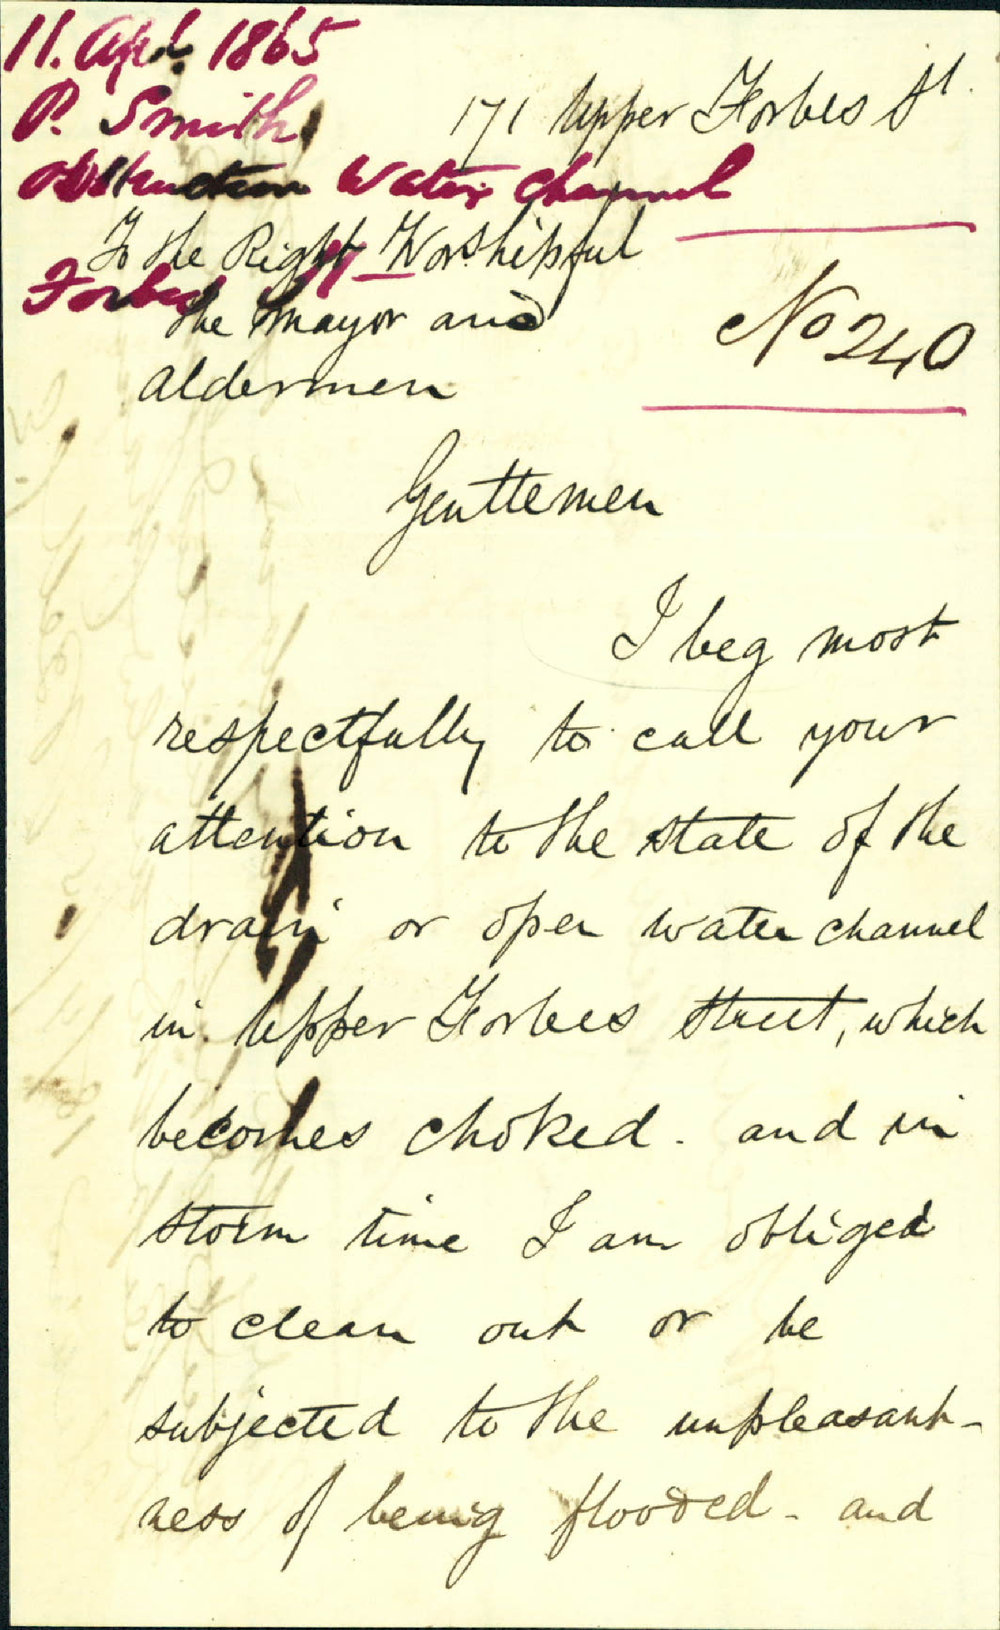 11. Apl. 1865
P. Smith
Obstruction Water Channel
Forbes St
171 Upper Forbes St.
To the Right Worshipful
the Mayor and
Aldermen
No 240
Gentlemen
I beg most
respectfully to call your
attention to the state of the
drain or open water channel
in Upper Forbes Street, which
becomes choked. and in
storm time I am obliged
to clean out or be
subjected to the unpleasant-
ness of being flooded - and